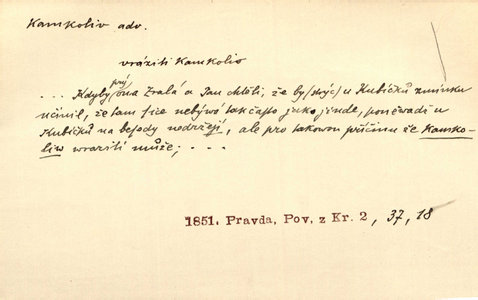 Kamkoliv adv.
vráziti Kamkoliv
. . . Kdyby prý ona Zralá a Jan chtěli, že by /strýc/ u Kubíčků zmínku
učinil, že tam sice nebývá tak často jako jinde, poněvadž u
Kubíčků na besedy nedržejí, ale pro takovou příčinu že Kamko-
liw wraziti může; . . .
1851. Pravda, Pov. z Kr. 2, 37, 18